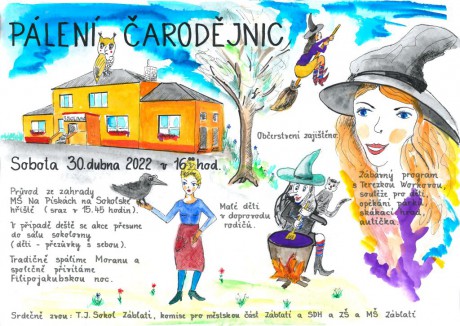 PÁLENÍ ČARODĚJNIC
Sobota 30.dubna 2022 v 16 hod.
Průvod ze zahrady
MŠ Na Pískách na Sokolské
hřiště (sraz v 15.45 hodin).
V případě deště se akce přesune
do sálu sokolovny
(děti - přezůvky s sebou).
Tradičně spálíme Moranu a
společně přivítáme
Filipojakubskou noc.
Malé děti
v doprovodu
rodičů.
Občerstvení zajištěno.
Zábavný program
s Terezkou
soutěže pro děti,
opékání párků,
skákací
autíčka.
Srdečně zvou: T.J. Sokol Záblatí, komise pro městskou část Záblatí a SDH a ZŠ a MŠ Záblatí